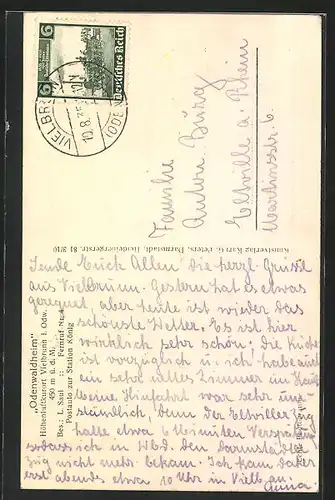 6 Deutsches Reich 6
VIELBRUNN
(ODENW
10.8.
Familie
Anton Bürg
Eltville a. Rhein
Martinsstr. 6
Kunstverlag Karl G. Peters, Darmstadt, Heidelbergerstr. 81 3/10
„Odenwaldheim"
Höhenluftkurort Vielbrunn i. Odw.
450 m ü. d. M.
Bes.: L. Saul :: Fernruf Nr. 4
Postauto zur Station König
Sende Euch Allen die herzl. Grüsse
aus Vielbrunn. Gestern hat es etwas
geregnet, aber heute ist wieder das
schönste Wetter. Es ist hier
wirklich sehr schön; die Küche
ist vorzüglich u. ich habe auch
ein sehr nettes Zimmer im Haus
Meine Hinfahrt war sehr um
ständlich, denn der Eltviller Zug
hatte etwa 6 Minuten Verspätung
sodass ich in Wbd. den Darmstädter
Zug nicht mehr bekam. Ich kam daher
erst abends etwa 10 Uhr in Vielb. an.
Anna